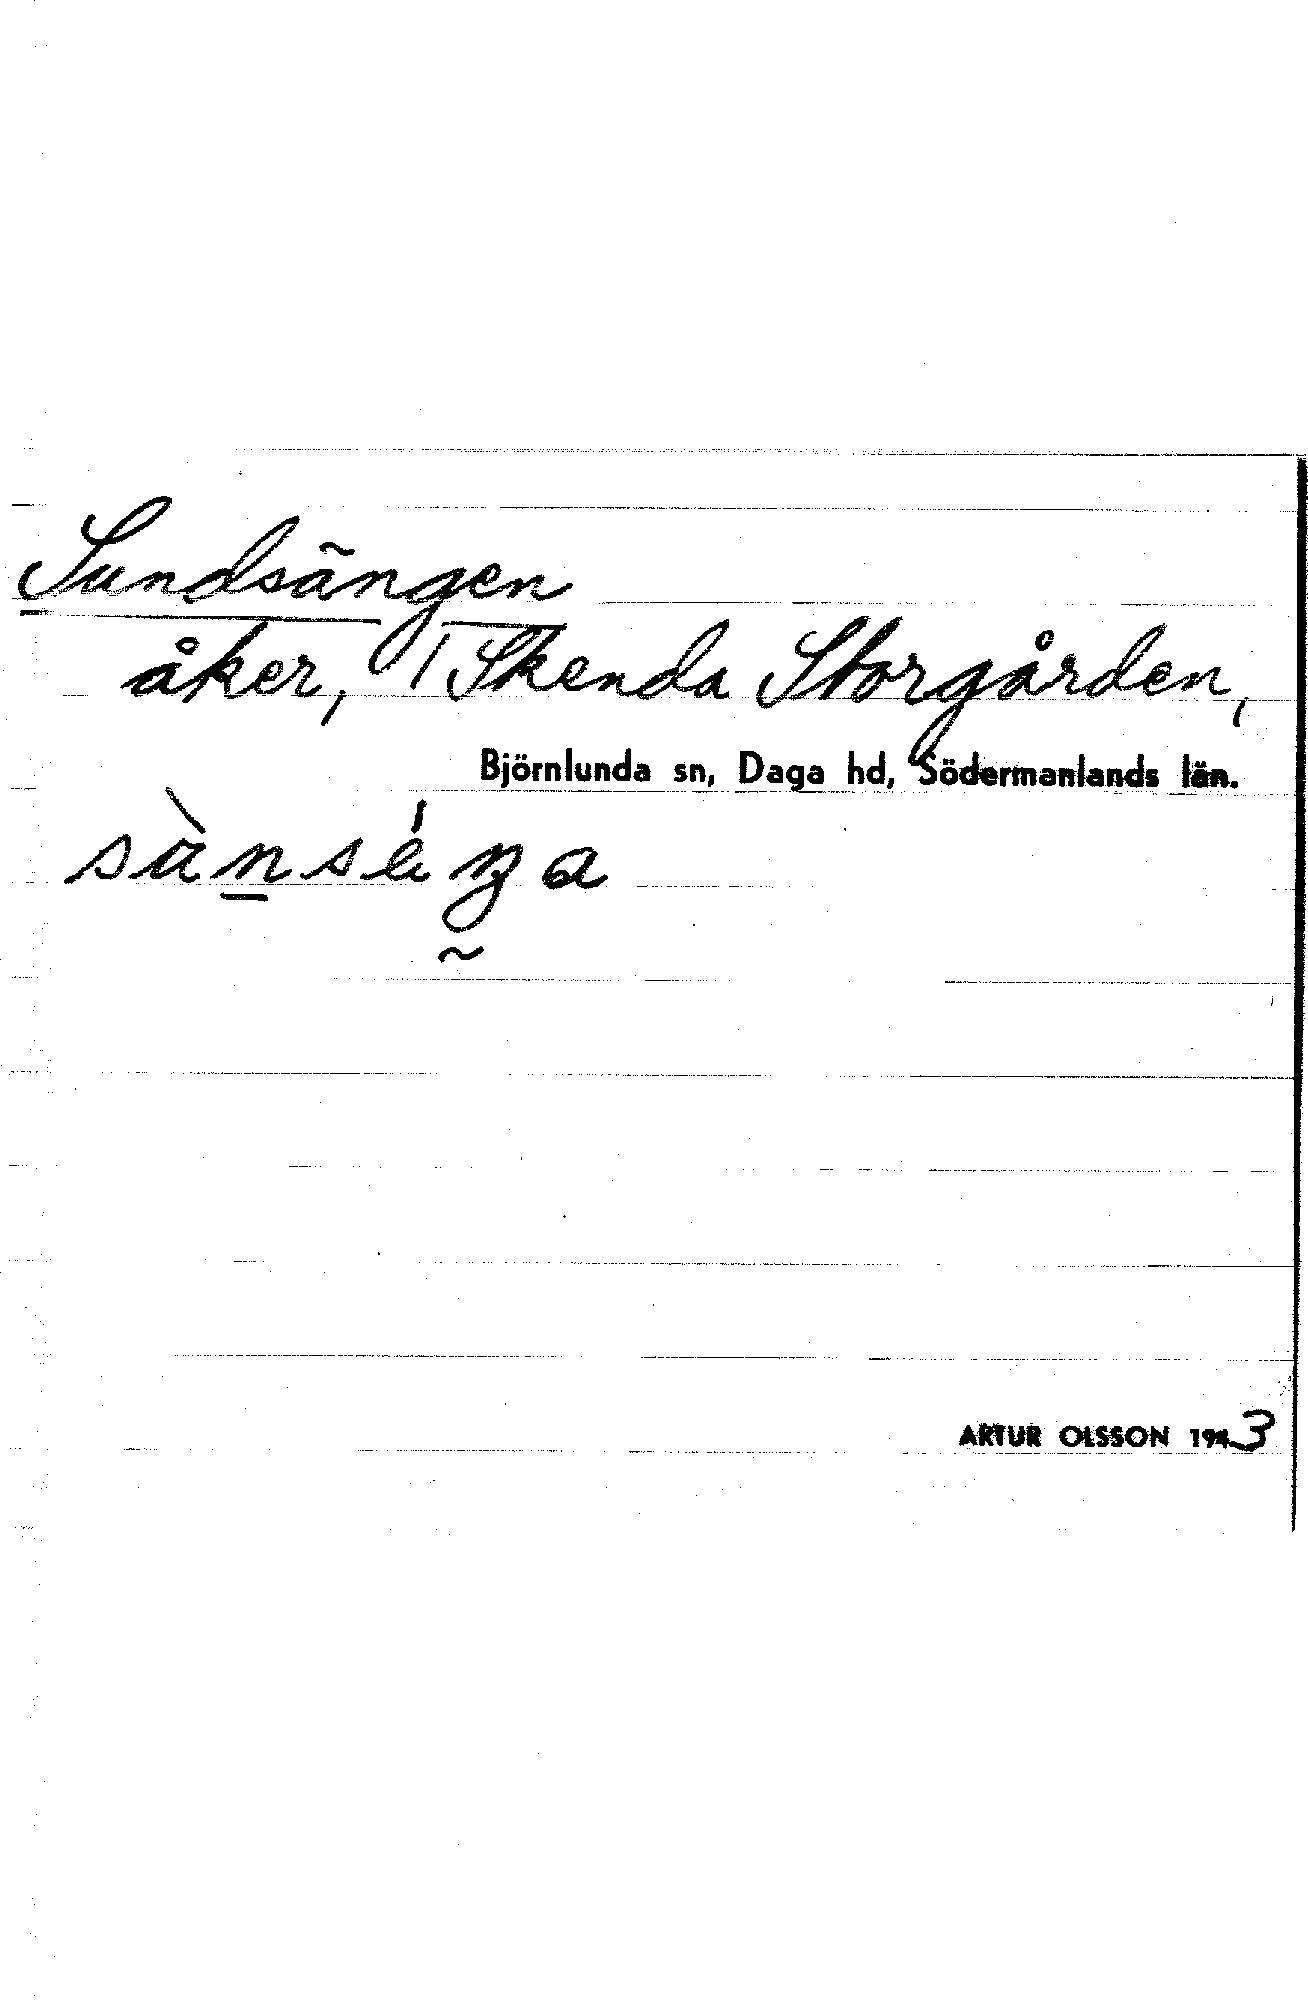 Sundsängen
åker, Skenda Storgården,
Björnlunda sn, Daga hd, Södermanlands län.
ARTUR OLSSON 1943